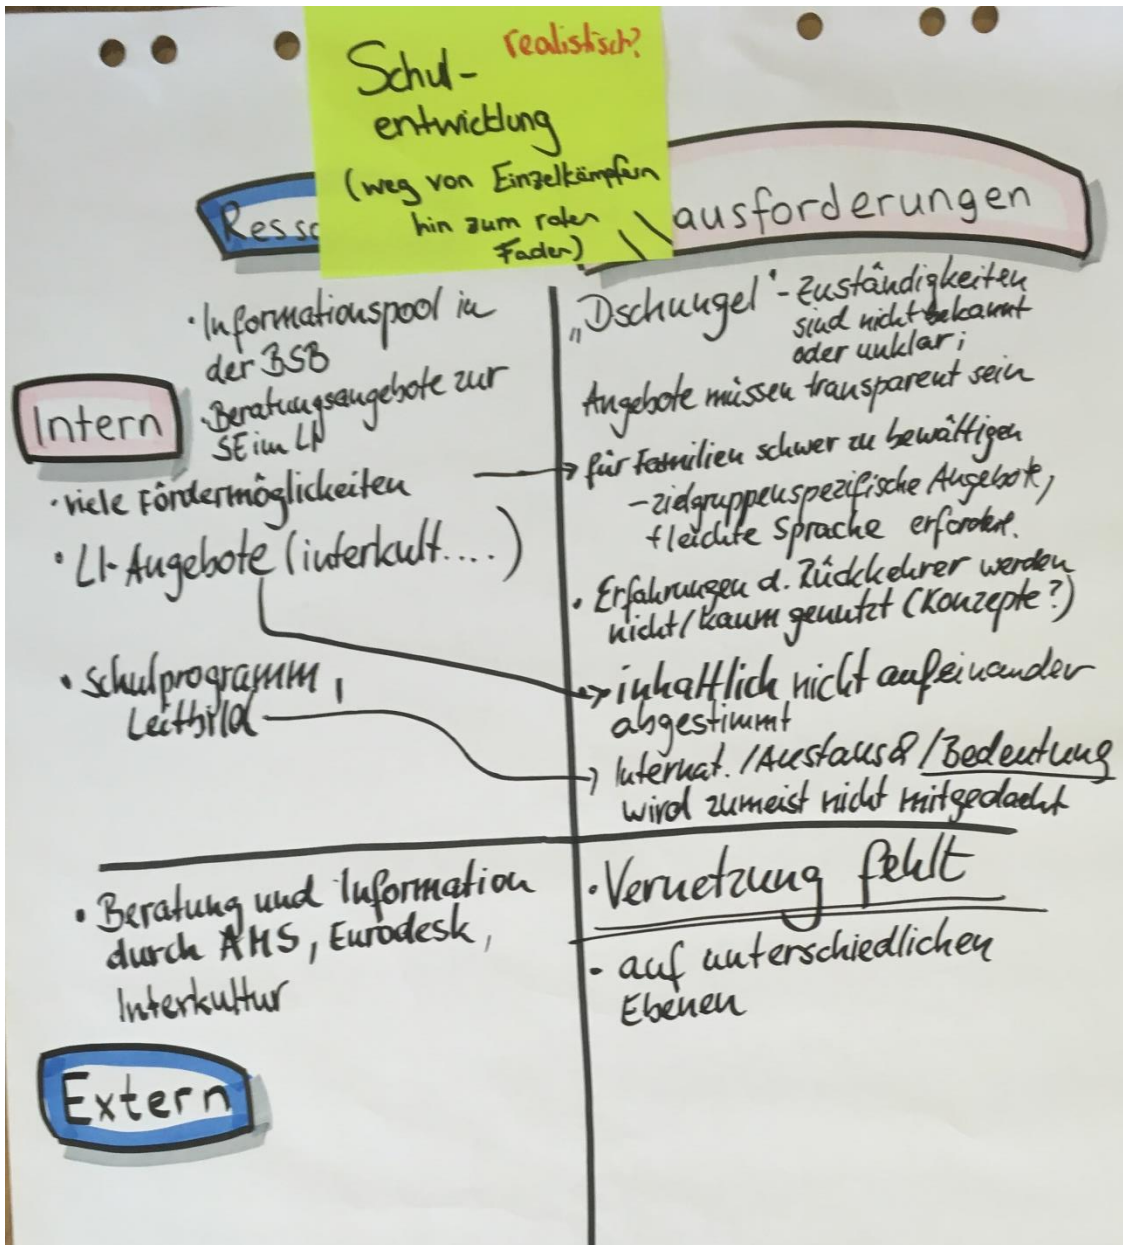 realistisch?
Schul-
entwicklung
(weg von Einzelkämpfern
hin zum roten
Faden)
Resso
ausforderungen
Intern
· Informationspool in
der BSB
· Beratungsangebote zur
SE im LI
· viele Fördermöglichkeiten
· LI-Angebote (interkult....)
· Schulprogramm,
Leitbild
„Dschungel" - Zuständigkeiten
sind nicht bekannt
oder unklar;
Angebote müssen transparent sein
→ für Familien schwer zu bewältigen
- zielgruppenspezifische Angebote,
+ leichte Sprache erforderl.
· Erfahrungen d. Rückkehrer werden
nicht/kaum genutzt (Konzepte?)
→ inhaltlich nicht aufeinander
abgestimmt
→ Internat./Austausch/Bedeutung
wird zumeist nicht mitgedacht
· Beratung und Information
durch AMS, Eurodesk,
Interkultur
Extern
· Vernetzung fehlt
· auf unterschiedlichen
Ebenen